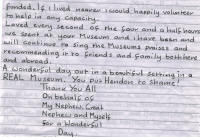 funded. If I lived nearer I would happily volunteer
to help in any capacity.
Loved every second of the four and a half hours
we spent at your Museum and I have been and
will continue to sing the Museums praises and
recommending it to friends and family both here
and abroad.
A wonderful day out in a beautiful setting in a
REAL Museum. You put Hendon to shame!
Thank You All
On behalf of
My Nephew, Great
Nephew and Myself
For a Wonderful
Day.